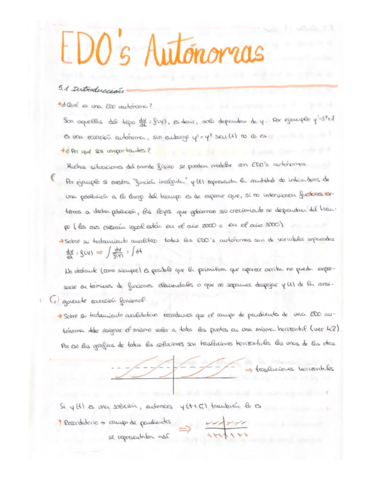 EDO's Autónomas
5.1 Introducción
→ ¿Qué es una EDO autónoma?
Son aquellas del tipo dy/dt = f(y), es decir, solo dependen de y. Por ejemplo
es una ecuación autónoma, sin embargo no lo es.
→ ¿Por qué son importantes?
Muchas situaciones del mundo físico se pueden modelar con EDO's autónomas.
Por ejemplo si nuestra "función incógnita" y(t) representa la cantidad de individuos de
una población a lo largo del tiempo es de esperar que, si no intervienen factores
a dicha población, las leyes que gobiernan su crecimiento no dependan del
po (las
→ Sobre su tratamiento analítico: todas las EDO's autónomas son de variables separadas
dy/dt = f(y) ⇒ ∫ dy/f(y) = ∫ dt
No obstante (como siempre) es posible que la primitiva que aparece escrita no pueda
en términos de funciones elementales o que no sepamos despejar y(t) de la
ecuación funcional
→ Sobre su tratamiento cualitativo: recordemos que el campo de pendientes de una EDO au-
tónoma debe asignar el mismo valor a todos los puntos en una misma horizontal (ver 4.2)
Por eso las gráficas de todas las soluciones son traslaciones horizontales las unas de las otras
→ traslaciones horizontales
Si y(t) es una solución, entonces y(t+C) también lo es
! Recordatorio → campo de pendientes ⇒
se representaba así